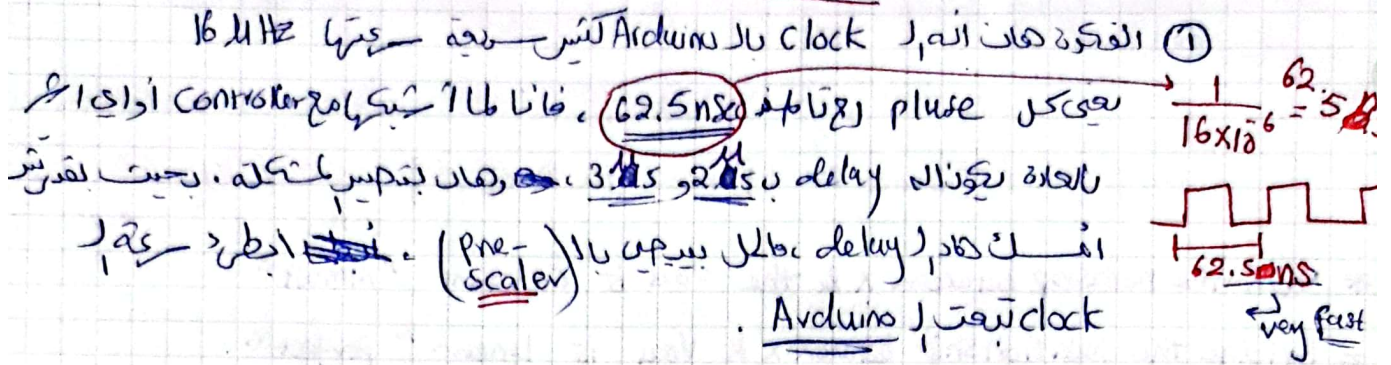 ① الفكرة هان أنه ال clock بال Arduino كثير سريعة سرعتها 16 MHz
يعني كل pluse رح تاخذ 62.5nSec ، فأنا لما أشبكها مع controller أو اي اشي
بالعادة بكون ال delay ب 2μs و 3μs ، وهان بتصير المشكلة . بحيث بقدرش
امسك هاد ال delay ، فالحل بيجي بال (pre-scaler) . ابطئ سرعة ال
clock تبعت ال Arduino .
1/16×10^-6 = 62.5
62.5 ns
very fast